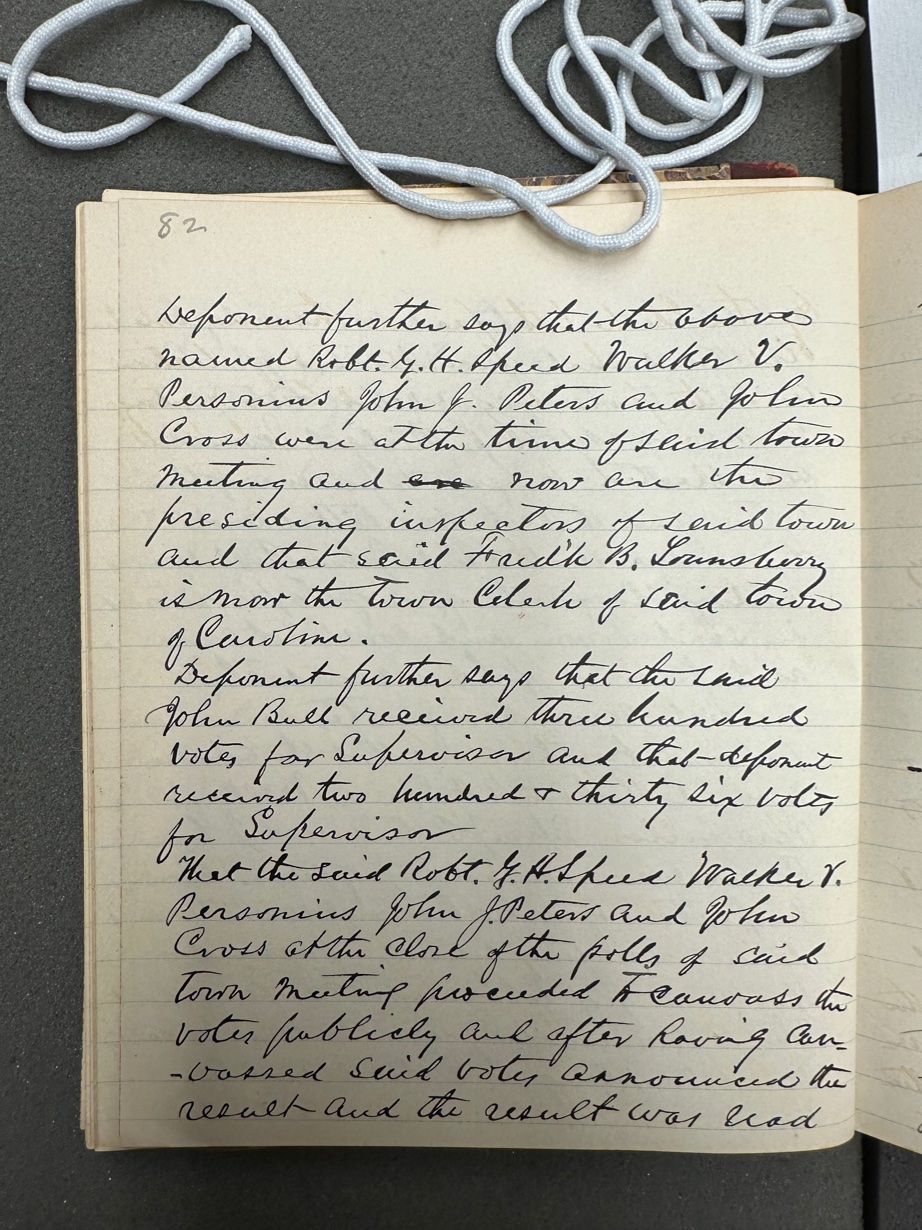 82
Deponent further says that the above
named Robt. G. H. Speed Walker V.
Personius John J. Peters and John
Cross were at the time of said town
meeting and are now are the
presiding inspectors of said town
and that said Fred'k B. Lounsberry
is now the town Clerk of said town
of Caroline.
Deponent further says that the said
John Bull received three hundred
votes for Supervisor and that deponent
received two hundred & thirty six votes
for Supervisor
That the said Robt. G. H. Speed Walker V.
Personius John J. Peters and John
Cross at the close of the polls of said
town meeting proceeded to canvass the
votes publicly and after having can-
-vassed said votes announced the
result and the result was read